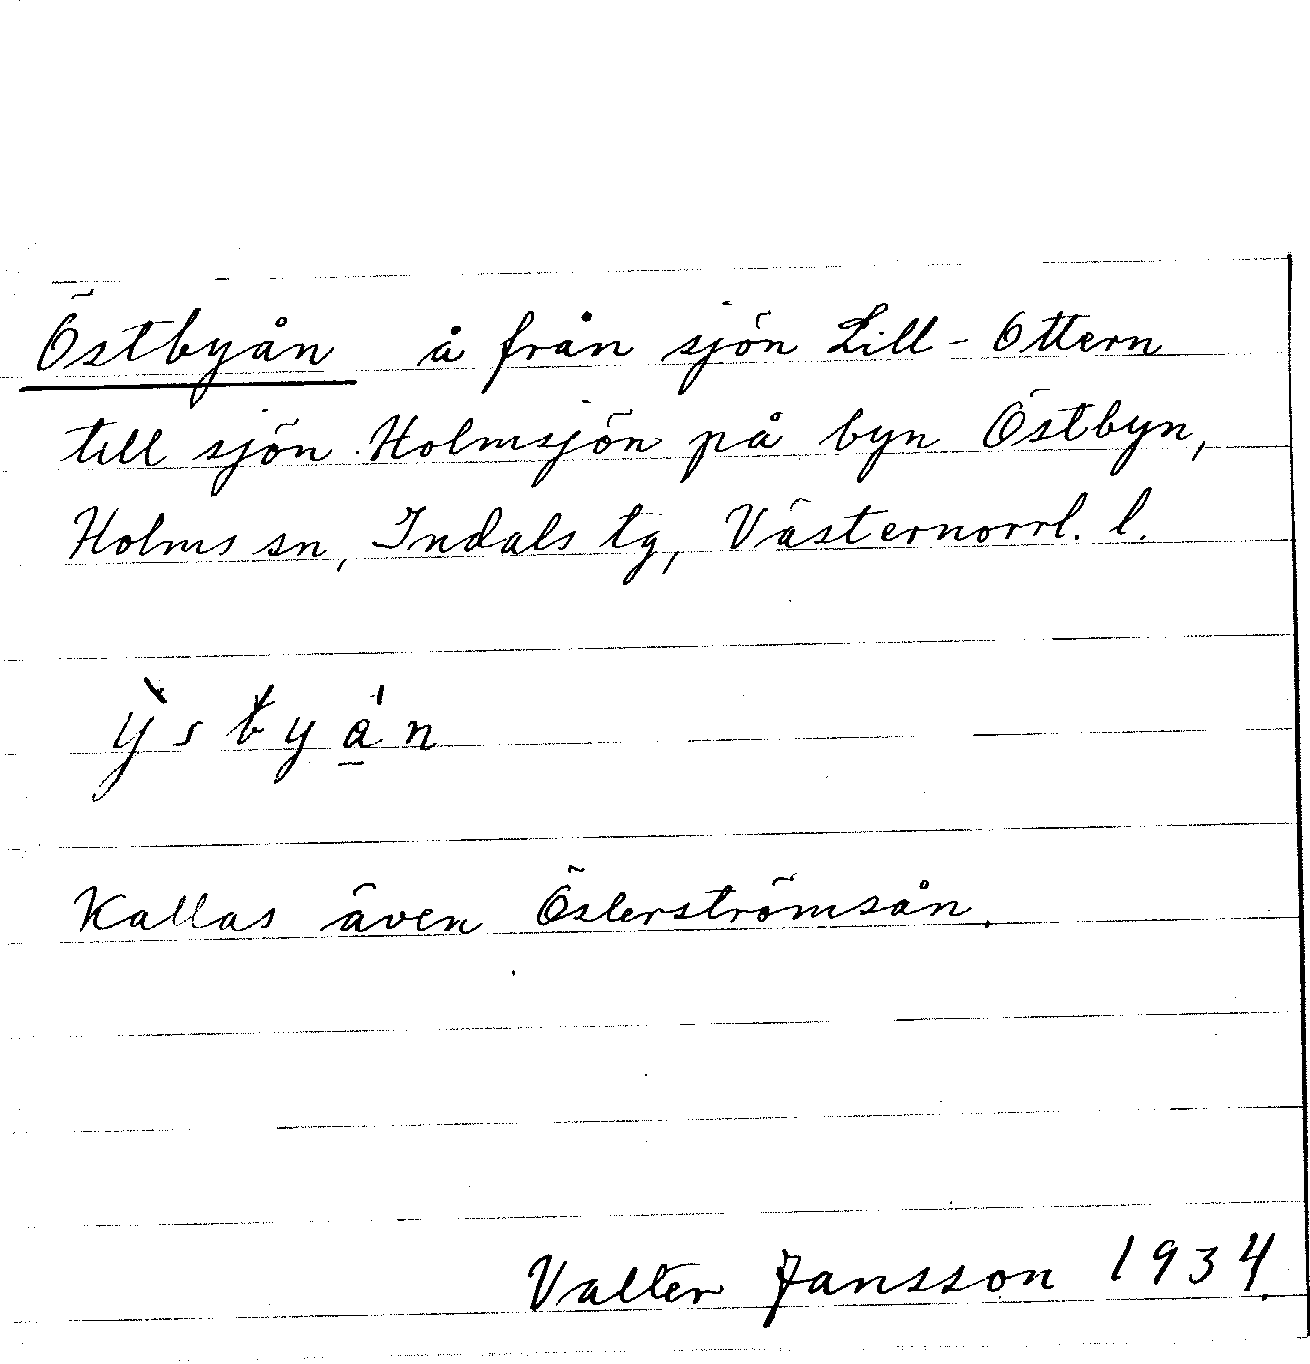 Östbyån å från sjön Lill-Ottern
till sjön Holmsjön på byn Östbyn,
Holms sn, Indals tg, Västernorrl. l.
Kallas även Österströmsån.
Valter Jansson 1934.